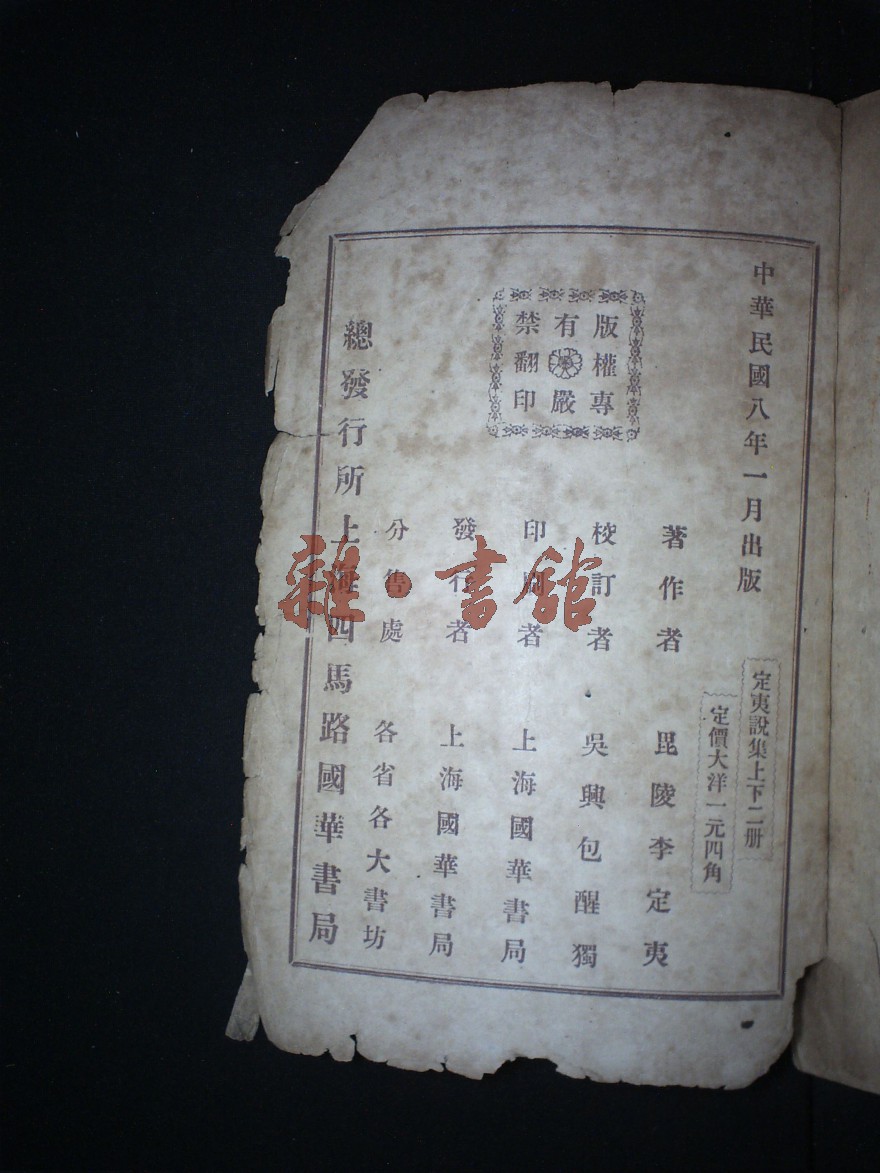 中華民國八年一月出版
定夷說集上下二册
定價大洋一元四角
版權專
有嚴
禁翻印
著作者 毘陵李定夷
校訂者 吳興包醒獨
印刷者 上海國華書局
發行者 上海國華書局
分售處 各省各大書坊
總發行所上海四馬路國華書局
雜·書館